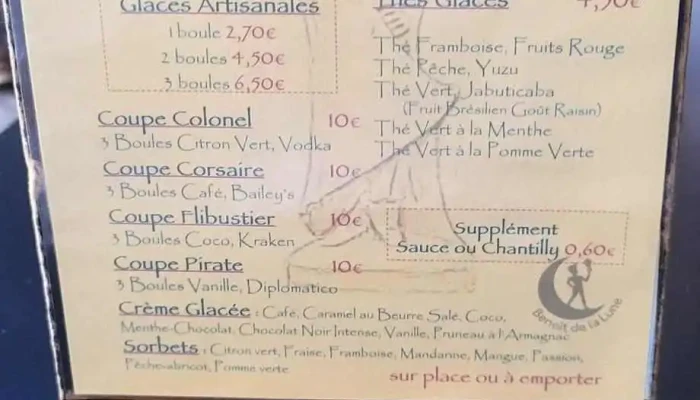 Glaces Artisanales
1 boule 2,70€
2 boules 4,50€
3 boules 6,50€
Coupe Colonel 10€
3 Boules Citron Vert, Vodka
Coupe Corsaire 10€
3 Boules Café, Bailey's
Coupe Flibustier 10€
3 Boules Coco, Kraken
Coupe Pirate 10€
3 Boules Vanille, Diplomatico
Thés Glacés 4,50€
Thé Framboise, Fruits Rouge
Thé Pêche, Yuzu
Thé Vert, Jabuticaba
(Fruit Brésilien Goût Raisin)
Thé Vert à la Menthe
Thé Vert à la Pomme Verte
Supplément
Sauce ou Chantilly 0,60€
Benoît de la Lune
Crème Glacée : Café, Caramel au Beurre Salé, Coco,
Menthe-Chocolat, Chocolat Noir Intense, Vanille, Pruneau à l'Armagnac
Sorbets : Citron vert, Fraise, Framboise, Mandarine, Mangue, Passion,
Pêche-abricot, Pomme verte
sur place ou à emporter